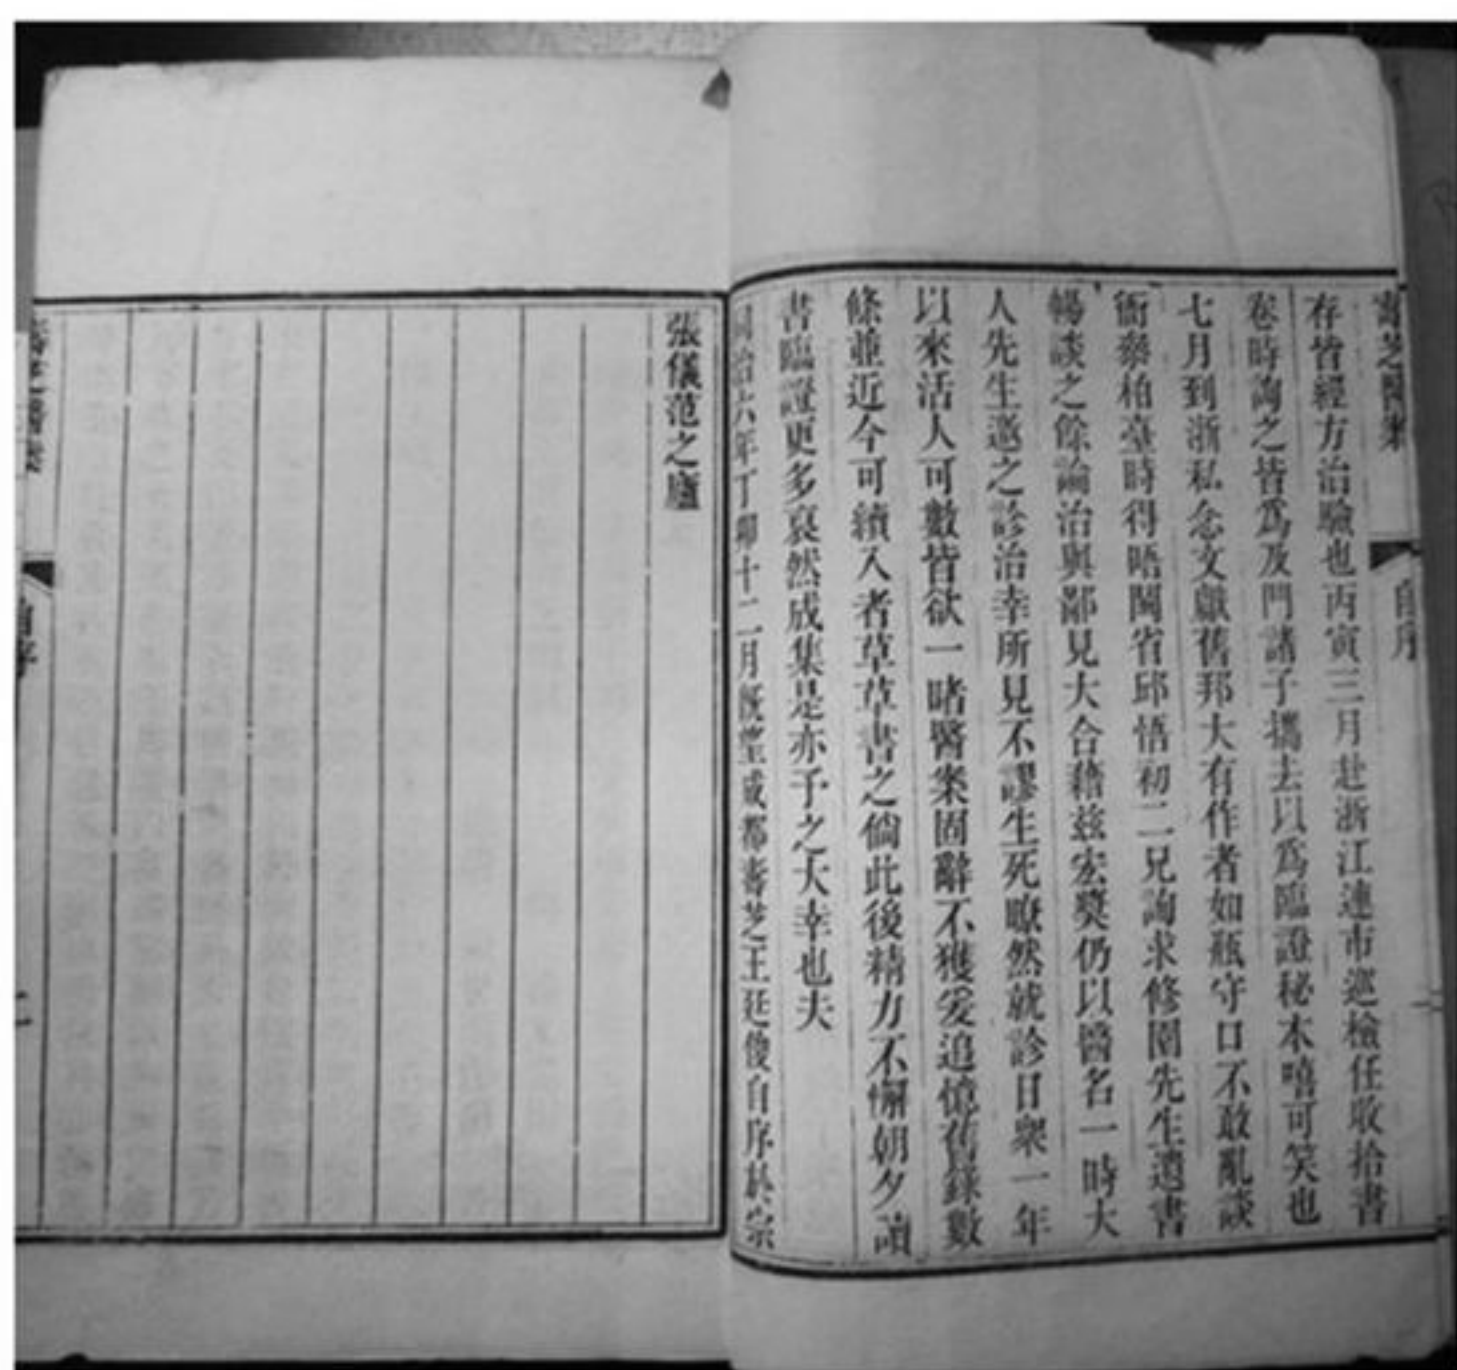 壽芝醫案
自序
存皆經方治驗也丙寅三月赴浙江連市巡檢任收拾書
卷時詢之皆爲及門諸子攜去以爲臨證秘本嘻可笑也
七月到浙私念文獻舊邦大有作者如瓶守口不敢亂談
衙叅柏臺時得晤閩省邱悟初二兄詢求修園先生遺書
暢談之餘論治與鄙見大合藉兹宏奬仍以醫名一時大
人先生邀之診治幸所見不謬生死瞭然就診日衆一年
以來活人可數皆欲一睹醫案固辭不獲爰追憶舊錄數
條並近今可續入者草草書之倘此後精力不懈朝夕讀
書臨證更多裒然成集是亦予之大幸也夫
同治六年丁卯十二月旣望成都壽芝王廷俊自序於宗
張儀范之廬
壽芝醫案
自序
二